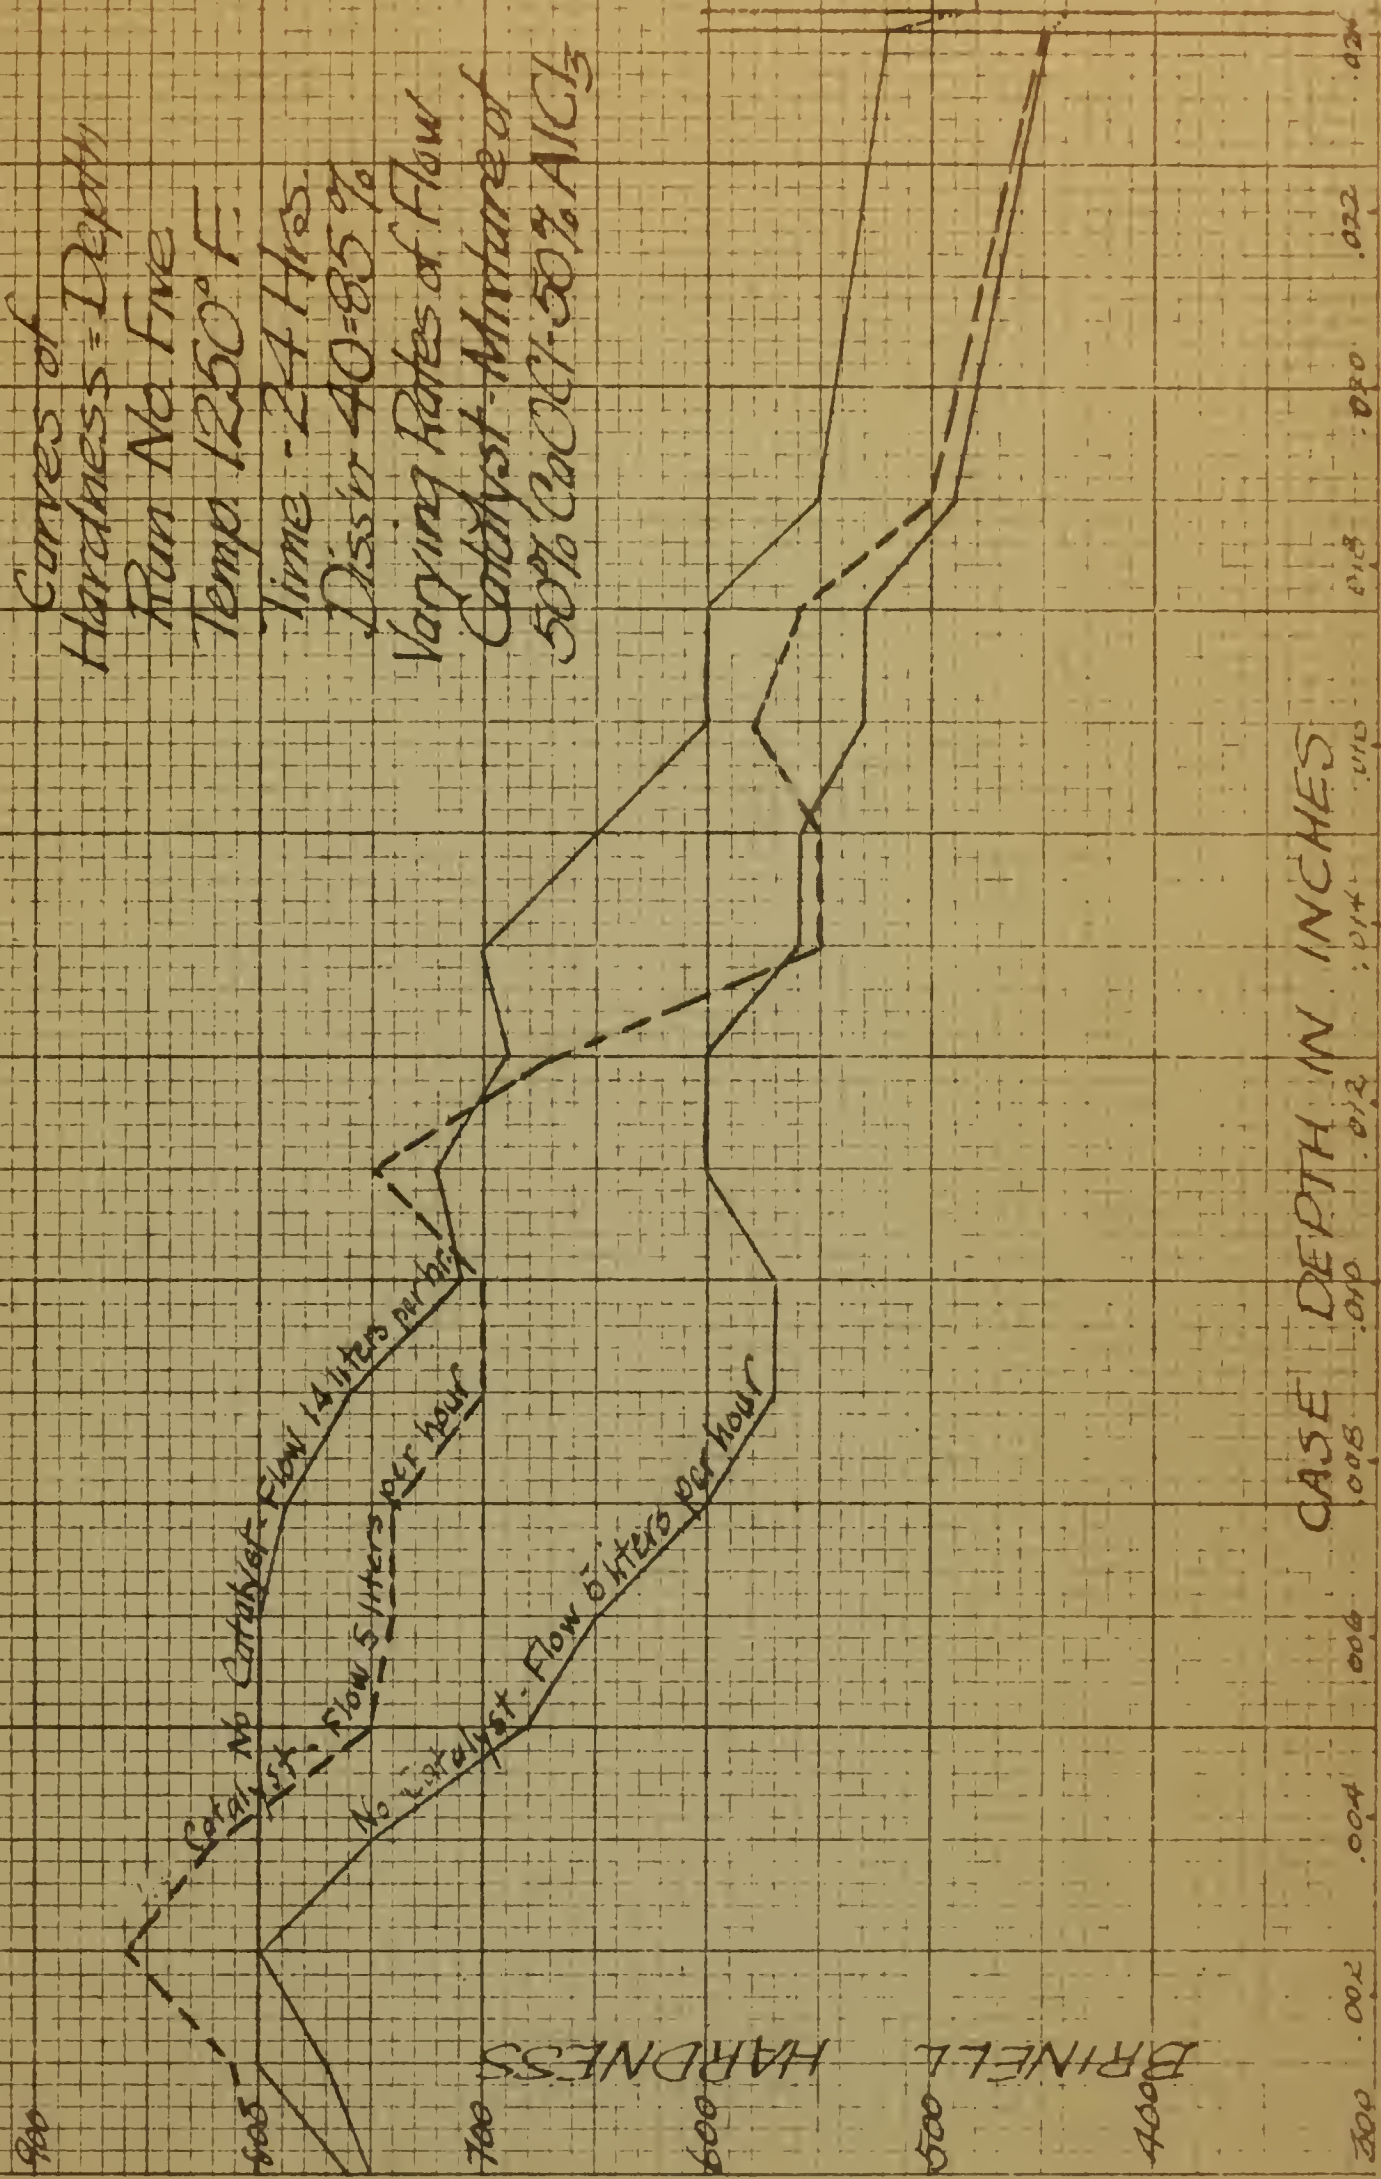 Curves of
Hardness=Depth
Run No Five
Temp. 1250° F.
Time - 24 Hrs.
Diss'n 40=85%
Varying Rates of Flow
Catalyst-Mixture of
50% CaOCl-50% AlCl3
No Catalyst-Flow 14 liters per hr.
Catalyst. Flow 5 liters per hour
No Catalyst-Flow 5 liters per hour
BRINELL HARDNESS
900
800
700
600
500
400
300
.002
.004
.006
.008
.010
.012
.014
.016
.018
.020
.022
.024
CASE DEPTH IN INCHES